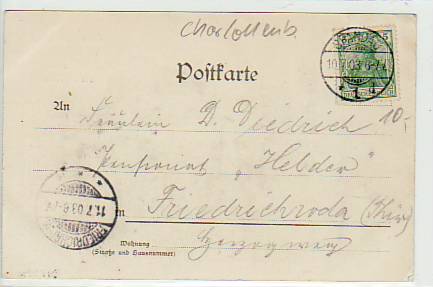 Charlottenb.
SPANDAU
10.7.03.6-7N
1 d
5
Postkarte
An
Fräulein D. Diedrich
10.-
Pensionat "Helder"
in Friedrichroda (Thür)
11.7.03.6-7
FRIEDRICHRODA
Wohnung
(Straße und Hausnummer)
Herzogweg